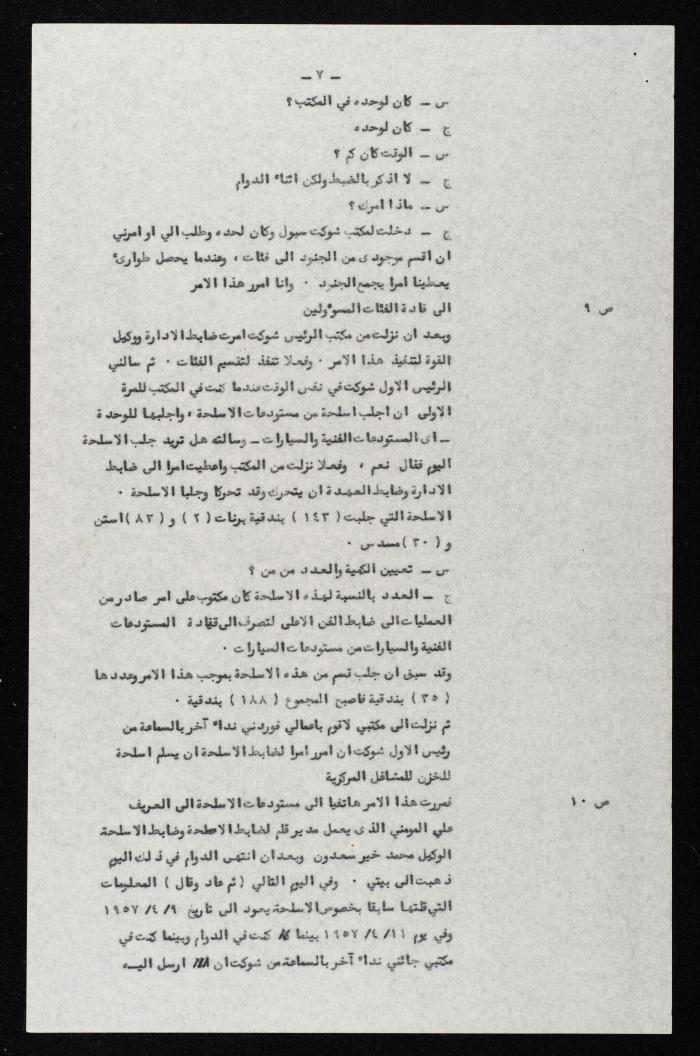 ـ ٧ ـ
س ـ كان لوحده في المكتب؟
ج ـ كان لوحده
س ـ الوقت كان كم ؟
ج ـ لا اذكر بالضبط ولكن اثناء الدوام
س ـ ماذا امرك؟
ج ـ دخلت لمكتب شوكت سبول وكان لحده وطلب الي او امرني
ان اقسم موجودى من الجنود الى فئات ، وعندما يحصل طوارىء
يعطينا امرا بجمع الجنود ٠ وانا امرر هذا الامر
الى قادة الفئات المسوءولين
ص ٩
وبعد ان نزلت من مكتب الرئيس شوكت امرت ضابط الادارة ووكيل
القوة لتنفيذ هذا الامر ٠ وفعلا تنفذ لتقسيم الفئات ٠ ثم سالني
الرئيس الاول شوكت في نفس الوقت عندما كنت في المكتب للمرة
الاولى ان اجلب اسلحة من مستودعات الاسلحة ، واجلبها للوحدة
ـ اى المستودعات الفنية والسيارات ـ وسالته هل تريد جلب الاسلحة
اليوم فقال نعم ، وفعلا نزلت من المكتب واعطيت امرا الى ضابط
الادارة وضابط العهدة ان يتحرك وقد تحركا وجلبا الاسلحة ٠
الاسلحة التي جلبت ( ١٤٣ ) بندقية برنات ( ٢ ) و ( ٨٣ ) استن
و ( ٣٠ ) مسدس ٠
س ـ تعيين الكمية والعدد من من ؟
ج ـ العدد بالنسبة لهذه الاسلحة كان مكتوب على امر صادر من
العمليات الى ضابط الفن الاعلى لتصرف الى قيادة المستودعات
الفنية والسيارات من مستودعات السيارات ٠
وقد سبق ان جلب قسم من هذه الاسلحة بموجب هذا الامر وعددها
( ٣٥ ) بندقية فاصبح المجموع ( ١٨٨ ) بندقية ٠
ثم نزلت الى مكتبي لاقوم باعمالي فوردني نداء آخر بالسماعة من
رئيس الاول شوكت ان امرر امرا لضابط الاسلحة ان يسلم اسلحة
للخزن للمشاغل المركزية
ص ١٠
فمررت هذا الامر هاتفيا الى مستودعات الاسلحة الى العريف
علي المومني الذى يعمل مدير قلم لضابط الاسلحة وضابط الاسلحة
الوكيل محمد خير سعدون وبعد ان انتهى الدوام في ذلك اليوم
ذهبت الى بيتي ٠ وفي اليوم التالي ( ثم عاد وقال ) المعلومات
التي قلتها سابقا بخصوص الاسلحة يعود الى تاريخ ٩/ ٤/ ١٩٥٧
وفي يوم ١١/ ٤/ ١٩٥٧ بينما كنت في الدوام وبينما كنت في
مكتبي جائني نداء آخر بالسماعة من شوكت ان ارسل اليه